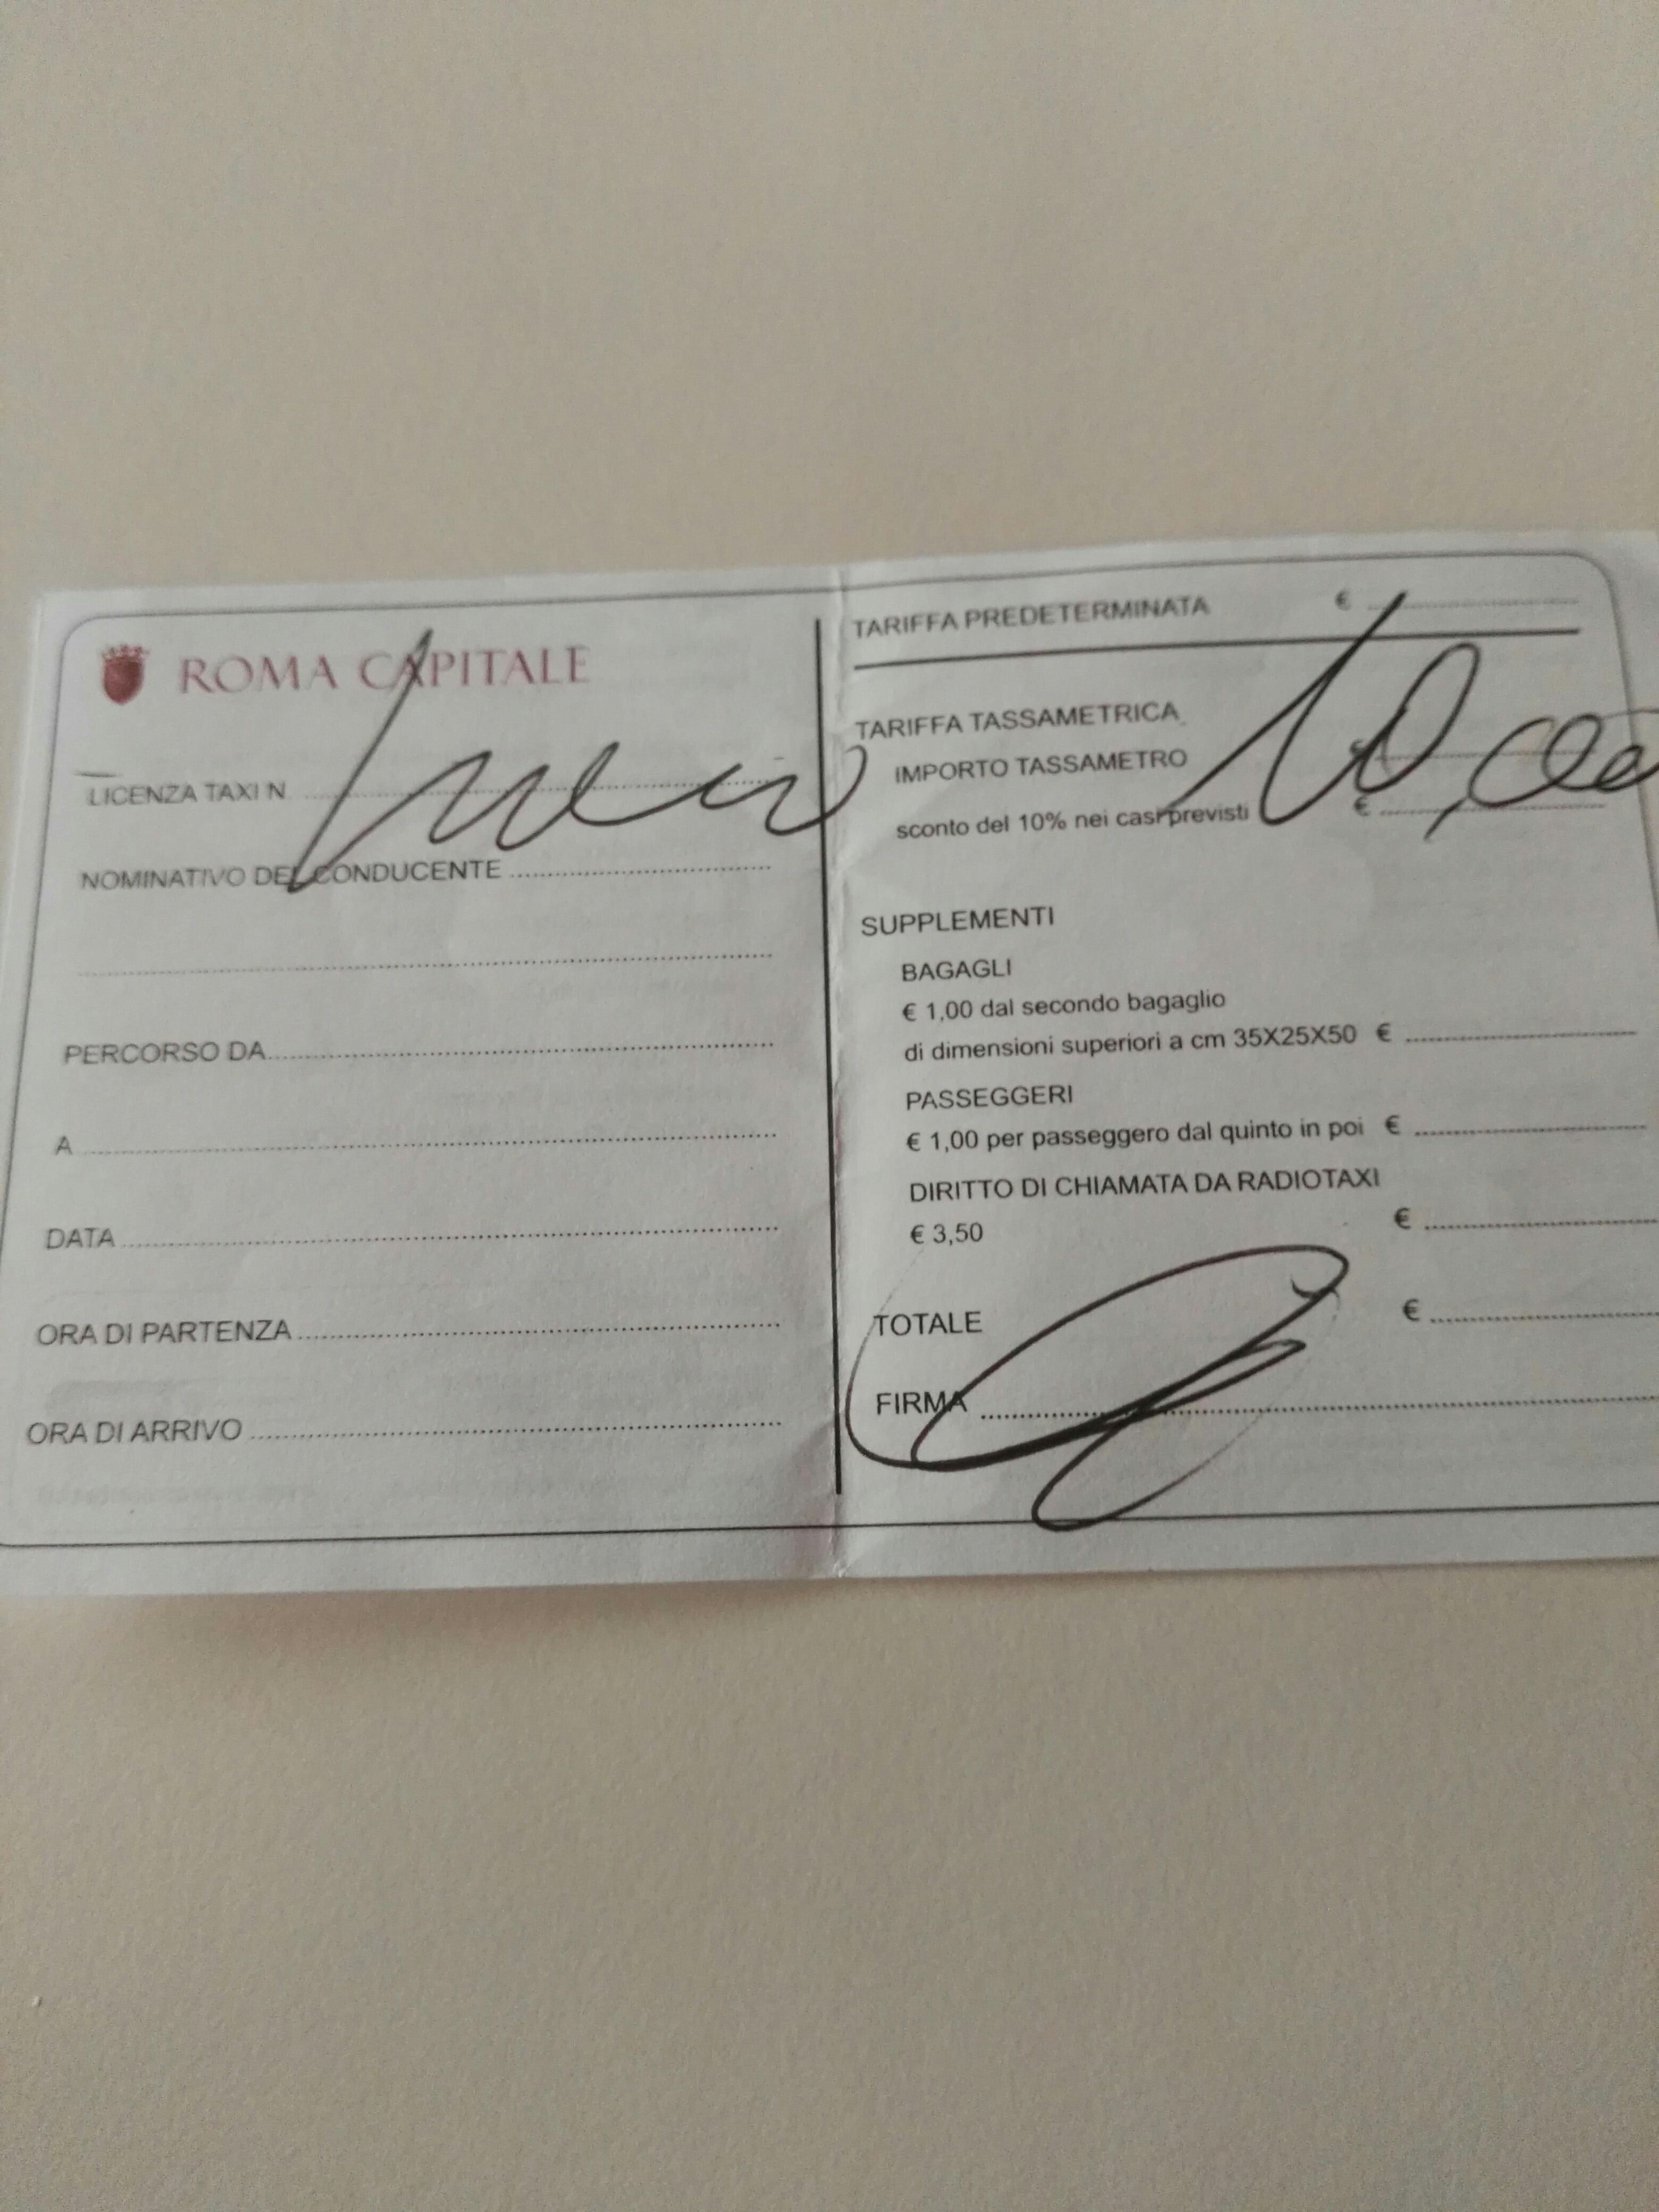 ROMA CAPITALE
LICENZA TAXI N
NOMINATIVO DEL CONDUCENTE
PERCORSO DA
A
DATA
ORA DI PARTENZA
ORA DI ARRIVO
TARIFFA PREDETERMINATA €
TARIFFA TASSAMETRICA
IMPORTO TASSAMETRO € 10,00
sconto del 10% nei casi previsti €
SUPPLEMENTI
BAGAGLI
€ 1,00 dal secondo bagaglio
di dimensioni superiori a cm 35X25X50 €
PASSEGGERI
€ 1,00 per passeggero dal quinto in poi €
DIRITTO DI CHIAMATA DA RADIOTAXI
€ 3,50 €
TOTALE €
FIRMA